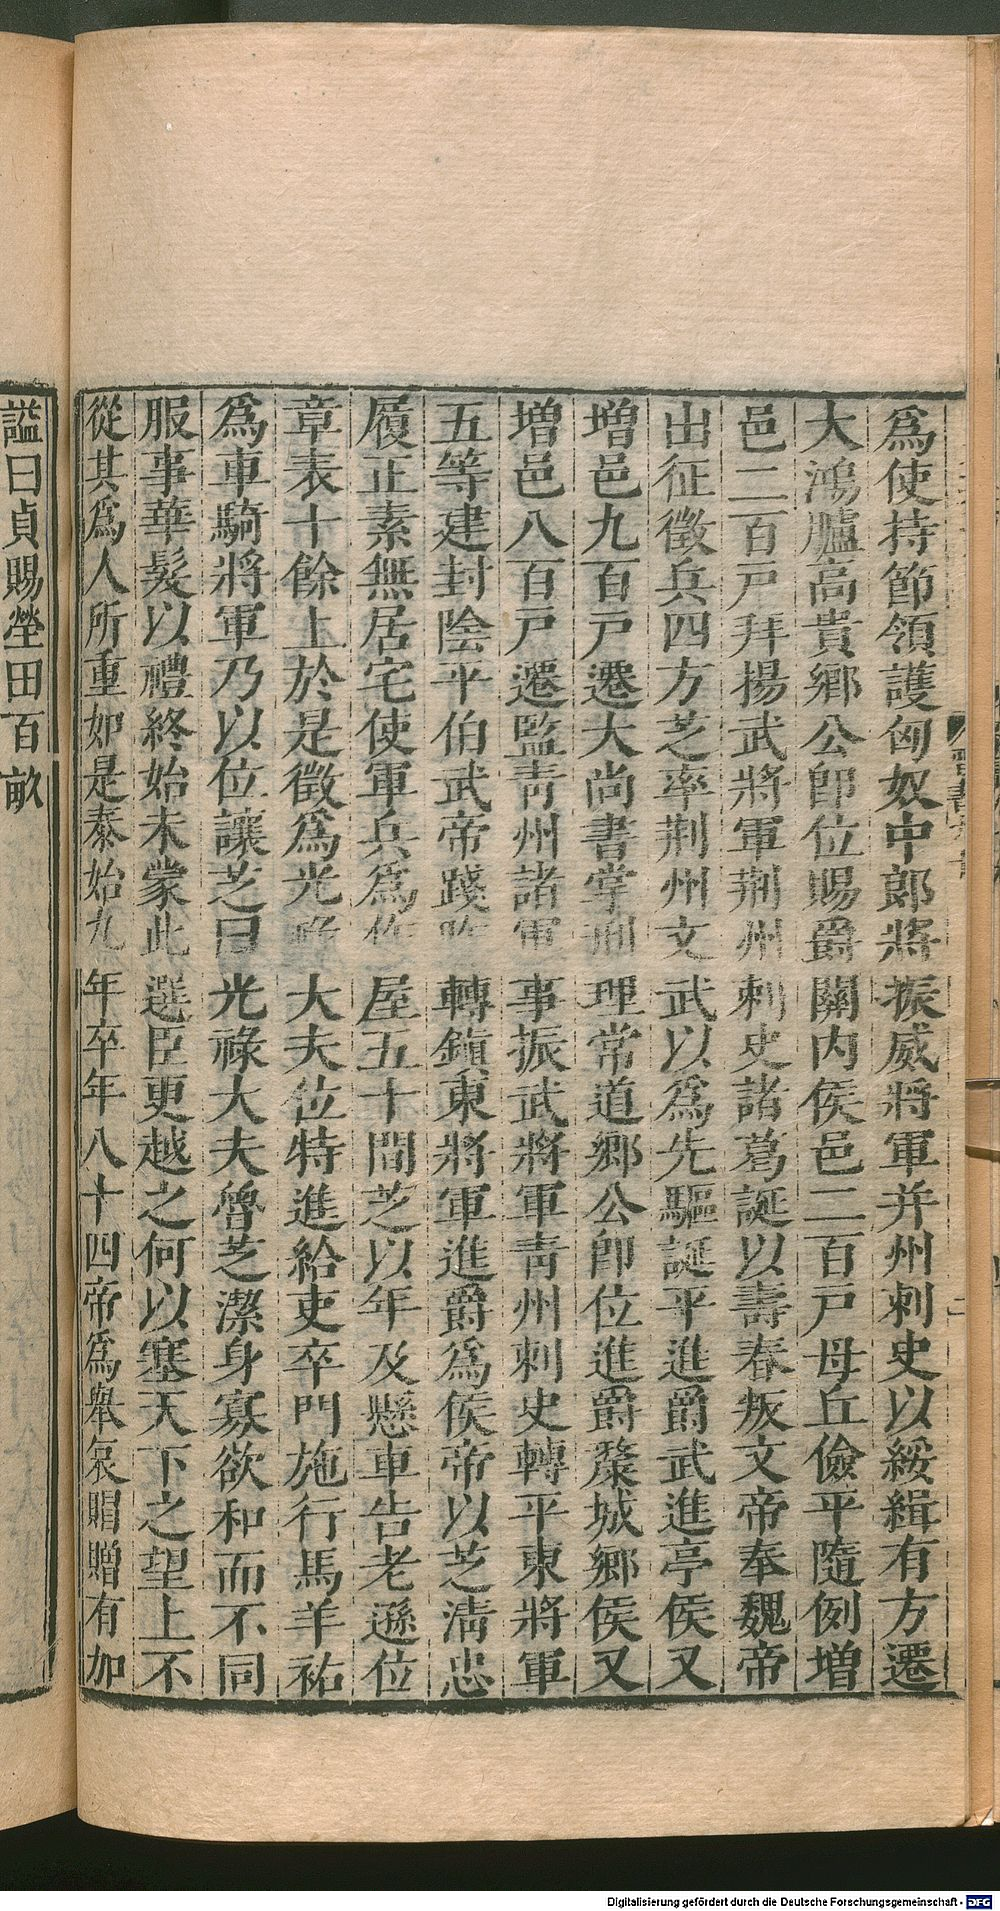 爲使持節領護匈奴中郎將振威將軍并州刺史以綏緝有方遷
大鴻臚高貴鄉公卽位賜爵關内侯邑二百戸母丘儉平隨例增
邑二百戸拜揚武將軍荆州刺史諸葛誕以壽春叛文帝奉魏帝
出征徵兵四方芝率荆州文武以爲先驅誕平進爵武進亭侯又
增邑九百戸遷大尚書掌刑理常道鄉公卽位進爵斄城鄉侯又
增邑八百戸遷監青州諸軍事振武將軍青州刺史轉平東將軍
五等建封陰平伯武帝踐阼轉鎭東將軍進爵爲侯帝以芝淸忠
履正素無居宅使軍兵爲作屋五十間芝以年及懸車告老遜位
章表十餘上於是徵爲光祿大夫位特進給吏卒門施行馬羊祜
爲車騎將軍乃以位讓芝曰光祿大夫魯芝潔身寡欲和而不同
服事華髮以禮終始未蒙此選臣更越之何以塞天下之望上不
從其爲人所重如是泰始九年卒年八十四帝爲舉哀賵贈有加
謚曰貞賜塋田百畝
Digitalisierung gefördert durch die Deutsche Forschungsgemeinschaft - DFG